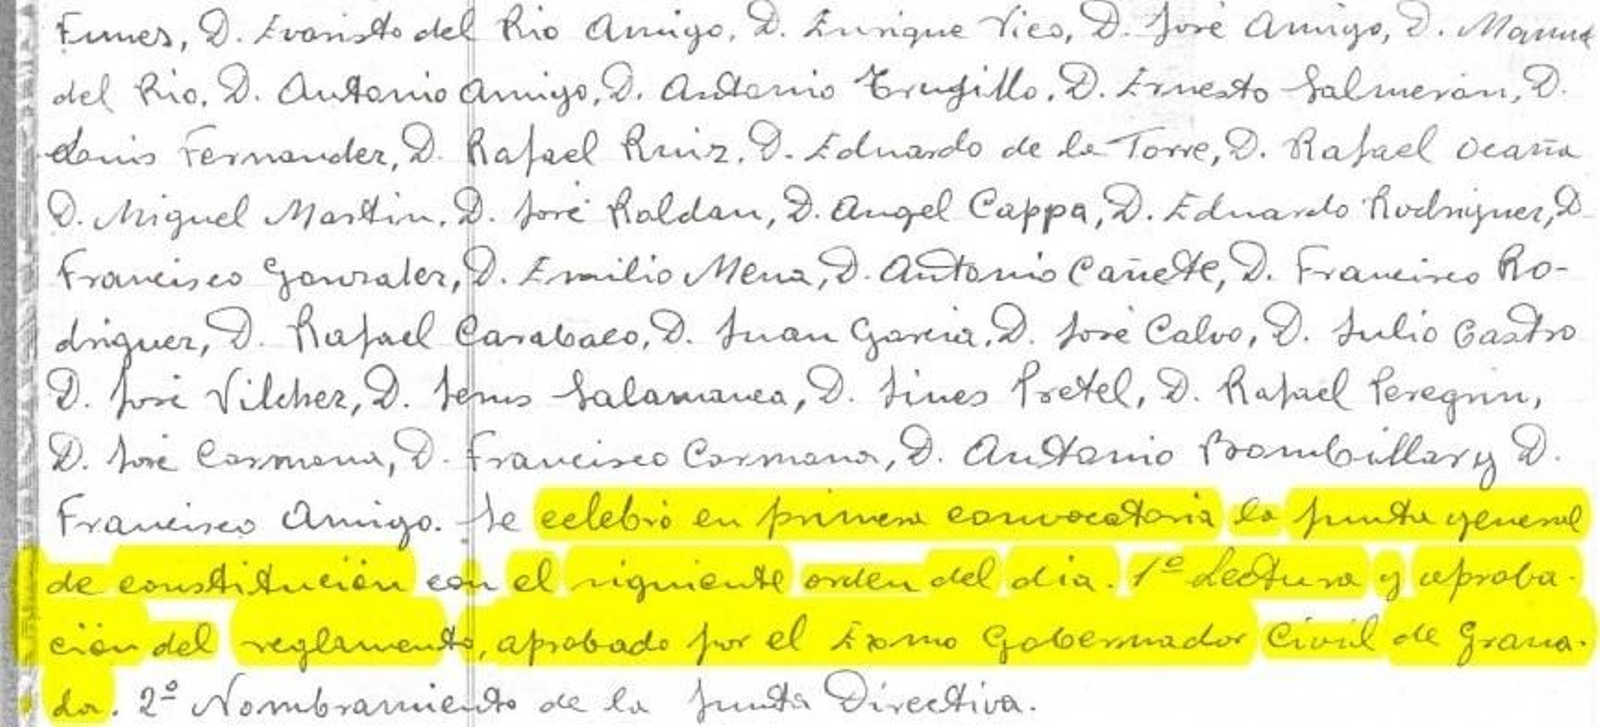 Funes, D. Evaristo del Rio Amigo, D. Enrique Vico, D. José Amigo, D. Manuel
del Rio, D. Antonio Amigo, D. Antonio Trugillo, D. Ernesto Salmerón, D.
Louis Fernandez, D. Rafael Ruiz, D. Eduardo de la Torre, D. Rafael Ocaña
D. Miguel Martin, D. José Roldan, D. Angel Cappa, D. Eduardo Rodriguez, D
Francisco Gonzalez, D. Emilio Mena, D. Antonio Cañete, D. Francisco Ro-
driguez, D. Rafael Carabaco, D. Juan Garcia, D. José Calvo, D. Julio Castro
D. José Vilchez, D. Jesus Salamanca, D. Jines Pretel, D. Rafael Peregrin,
D. José Carmona, D. Francisco Carmona, D. Antonio Bombillar y D.
Francisco Amigo. Se celebró en primera convocatoria la junta general
de constitución con el siguiente orden del dia. 1º Lectura y aproba-
ción del reglamento, aprobado por el Exmo Gobernador Civil de Grana-
da. 2º Nombramiento de la Junta Directiva.